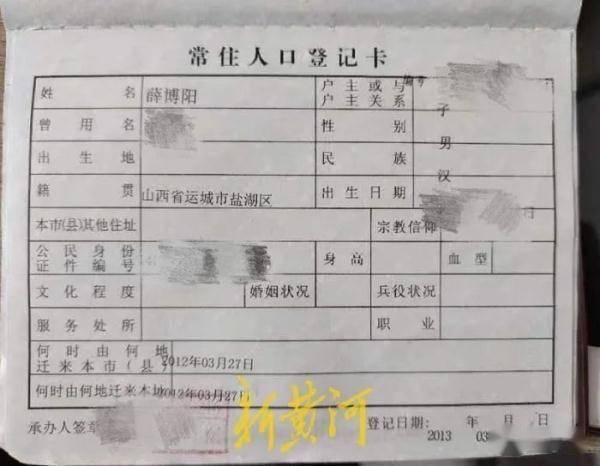 常住人口登记卡
编号
姓名 薛博阳 户主或与户主关系 子
曾用名 性别 男
出生地 民族 汉
籍贯 山西省运城市盐湖区 出生日期 日
本市(县)其他住址 宗教信仰
公民身份证件编号 身高 血型
文化程度 婚姻状况 兵役状况
服务处所 职业
何时由何地迁来本市(县) 2012年03月27日
何时由何地迁来本地 2012年03月27日
承办人签章 新黄河 登记日期: 年 月 日
2013 03